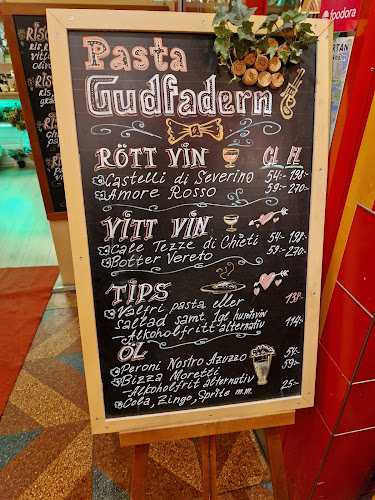 foodora
Pasta
Gudfadern
RÖTT VIN Gl Fl
Castelli di Severino 54:- 198:-
Amore Rosso 59:- 270:-
VITT VIN
Cale Tezze di Chieti 54:- 198:-
Botter Vereto 59:- 270:-
TIPS
Valfri pasta eller 138:-
Sallad samt 1gl husetsvin
Alkoholfritt alternativ 114:-
ÖL
Peroni Nostro Azuzzo 54:-
Bizza Moretti 59:-
Alkoholfrit alternativ
Cola, Zingo, Sprite m.m. 25:-